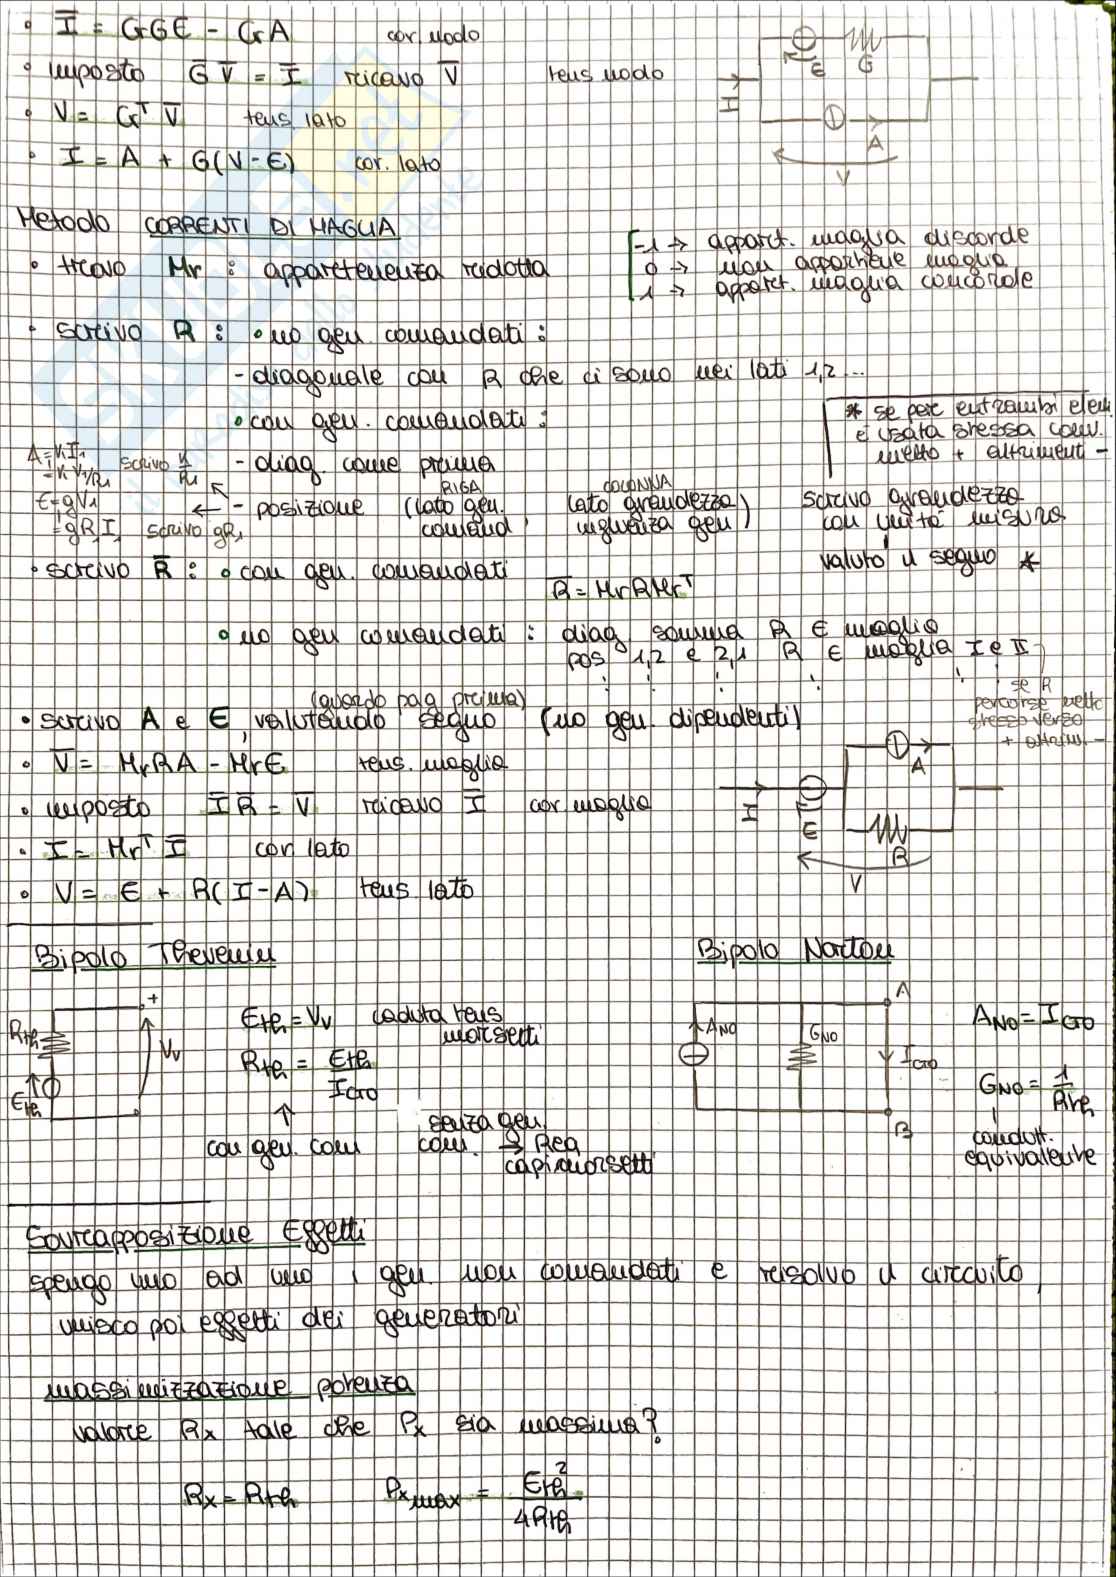 • I̅ = GrGE - GrA cor. nodo
• imposto G̅ V̅ = I̅ ricavo V̅ tens nodo
• V = Grᵀ V̅ tens lato
• I = A + G(V-E) cor. lato
E G
I
A
V
Metodo CORRENTI DI MAGLIA
• trovo Mr : appartenenza ridotta
-1 → appart. maglia discorde
0 → non appartiene maglia
1 → appart. maglia concorde
• scrivo R : • no gen comandati :
- diagonale con R che ci sono nei lati 1,2...
• con gen. comandati :
* se per entrambi elem.
è usata stessa conv.
metto + altrimenti -
- diag. come prima
- posizione (lato gen. comand, lato grandezza influenza gen)
RIGA COLONNA
scrivo grandezza
con unità misura
valuto il segno *
A = K I₁
= K V₁/R₁ scrivo K/R₁
E = gV₁
= gR₁I₁ scrivo gR₁
• scrivo R̅ : • con gen. comandati
R̅ = MrRMrᵀ
• no gen comandati : diag. somma R ∈ maglia
pos 1,2 e 2,1 R ∈ maglia I e II
se R
percorse nello
stesso verso
+ altrim. -
(guardo pag prima)
• scrivo A e E, valutando segno (no gen. dipendenti)
• V̅ = MrRA - MrE tens. maglia
• imposto I̅ R̅ = V̅ ricavo I̅ cor maglia
• I = Mrᵀ I̅ cor lato
• V = E + R(I-A) tens lato
A
I
E
R
V
Bipolo Thevenin
+
Rth
Eth
Vv
Eth = Vv caduta tens
morsetti
Rth = Eth/Icto
↑
con gen. com
senza gen.
com. → Req
capi morsetti
Bipolo Norton
A
ANO
GNO
Icto
B
ANO = Icto
GNO = 1/Rth
condutt.
equivalente
Sovrapposizione Effetti
spengo uno ad uno i gen. non comandati e risolvo il circuito,
unisco poi effetti dei generatori
massimizzazione potenza
valore Rx tale che Px sia massima?
Rx = Rth Px max = Eth²/4Rth